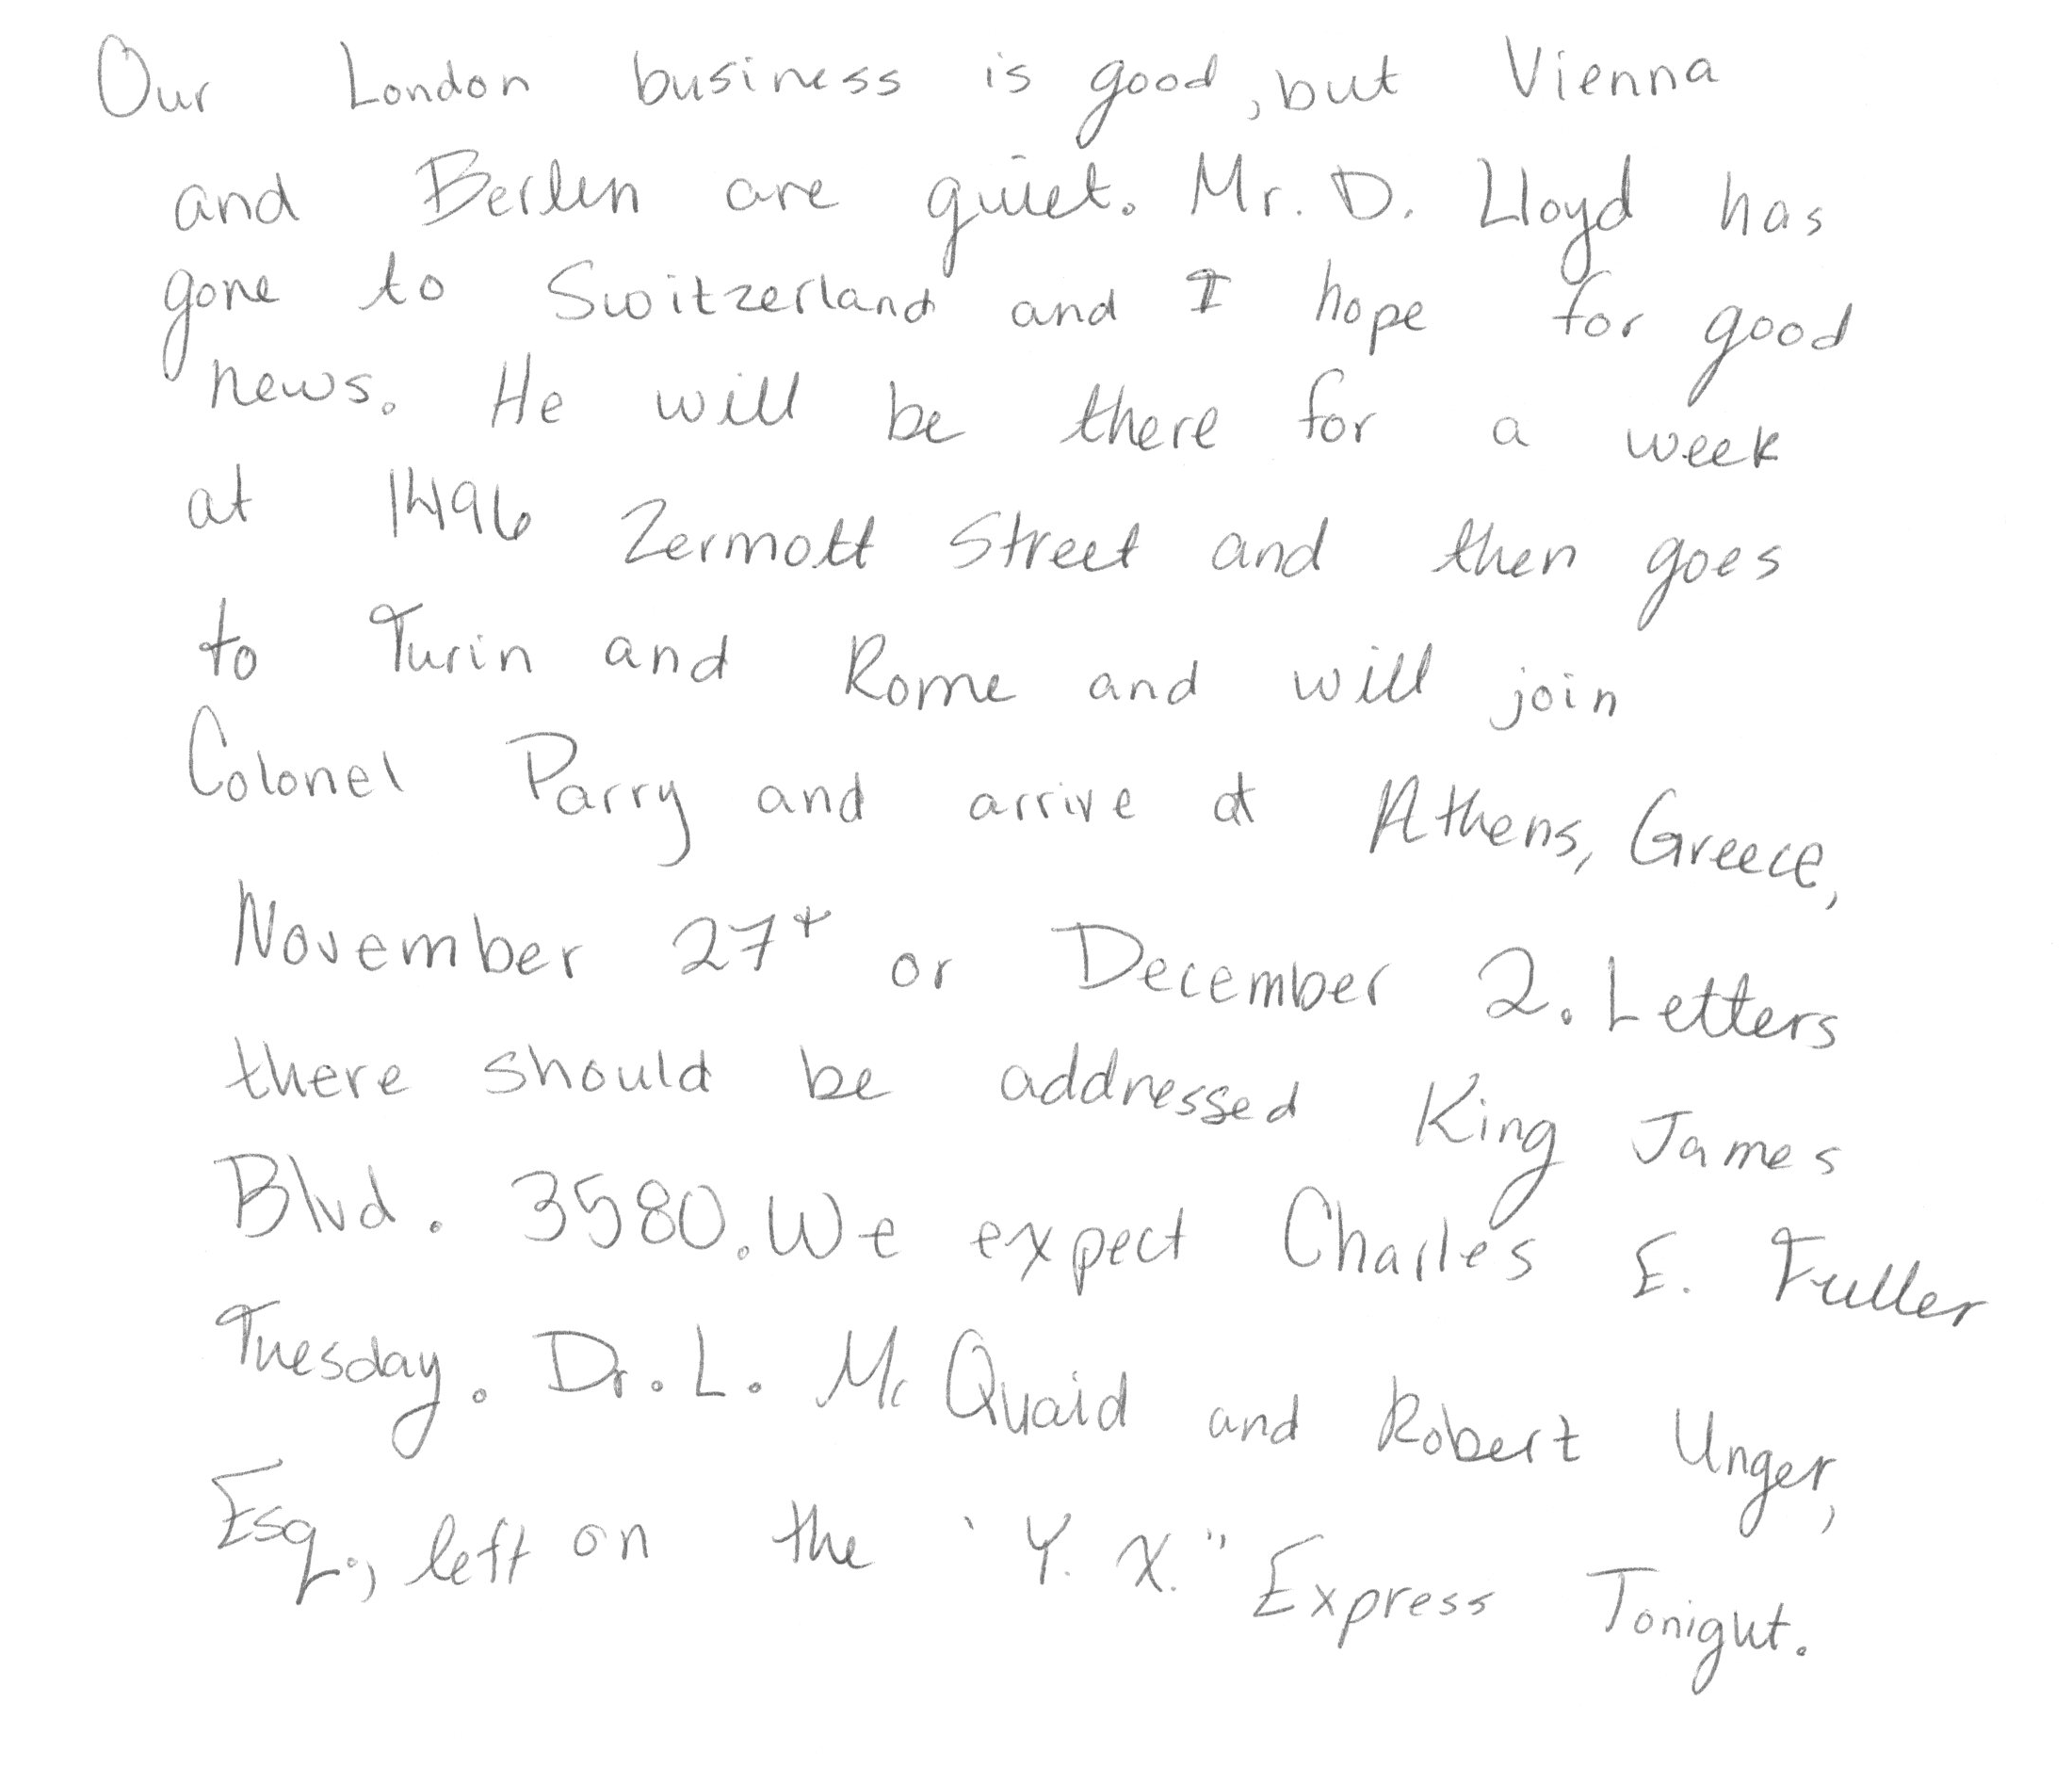 Our London business is good, but Vienna
and Berlin are quiet. Mr. D. Lloyd has
gone to Switzerland and I hope for good
news. He will be there for a week
at 1496 Zermott Street and then goes
to Turin and Rome and will join
Colonel Parry and arrive at Athens, Greece,
November 27+ or December 2. Letters
there should be addressed King James
Blvd. 3580. We expect Charles E. Fuller
Tuesday. Dr. L. Mc Quaid and Robert Unger,
Esq., left on the "Y. X." Express Tonight.